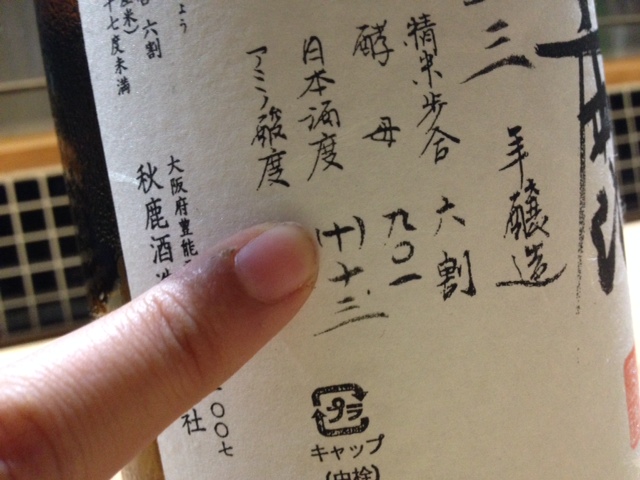 三
年醸造
精米歩合 六割
酵母 九〇一
日本酒度 (十)十三
アミノ酸度
六割
十七度未満
大阪府豊能
秋鹿酒造
社
〇〇七
プラ
キャップ
(中栓)